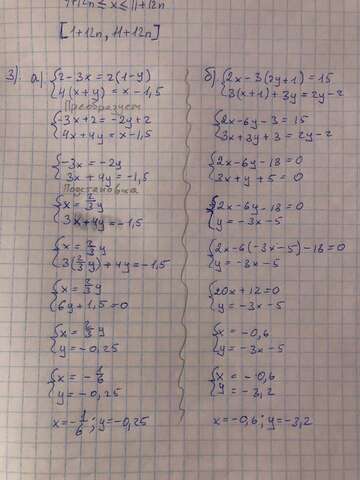 4+12n ≤ x ≤ 11+12n
[1+12n, 11+12n]
3) а) {2-3x=2(1-y)
4(x+y)=x-1,5
Преобразуем
{-3x+2=-2y+2
4x+4y=x-1,5
{-3x=-2y
3x+4y=-1,5
Подстановка
{x=2/3y
3x+4y=-1,5
{x=2/3y
3(2/3y)+4y=-1,5
{x=2/3y
6y+1,5=0
{x=2/3y
y=-0,25
{x=-1/6
y=-0,25
x=-1/6; y=-0,25
б) {2x-3(2y+1)=15
3(x+1)+3y=2y-2
{2x-6y-3=15
3x+3y+3=2y-2
{2x-6y-18=0
3x+y+5=0
{2x-6y-18=0
y=-3x-5
{2x-6(-3x-5)-18=0
y=-3x-5
{20x+12=0
y=-3x-5
{x=-0,6
y=-3x-5
{x=-0,6
y=-3,2
x=-0,6; y=-3,2